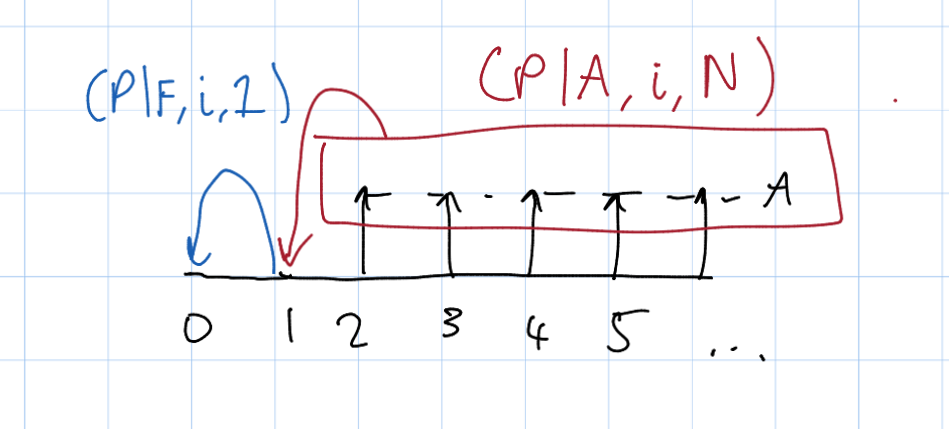 (P|F, i, 1)
(P|A, i, N)
A
0 1 2 3 4 5 ...